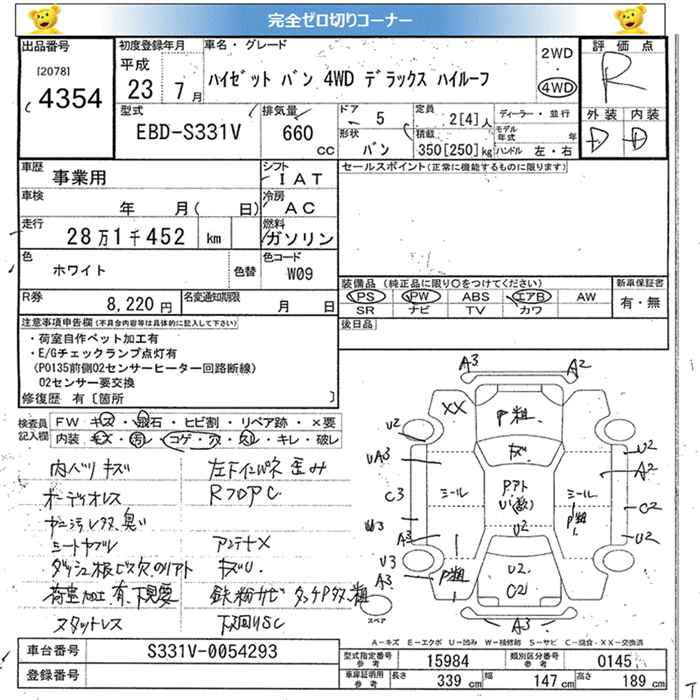 完全ゼロ切りコーナー
出品番号
[2078]
4354
初度登録年月
平成
23 7月
車名・グレード
ハイゼット バン 4WD デラックス ハイルーフ
2WD
・
4WD
評価点
R
外装 内装
D D
型式
EBD-S331V
排気量
660 cc
ドア 5
形状 バン
定員 2[4]人
積載 350[250]kg
ディーラー・並行
モデル年式 年
ハンドル 左・右
車歴
事業用
シフト
IAT
車検
年 月( 日)
冷房
AC
走行
28万1千452 km
燃料
ガソリン
色
ホワイト
色替
色コード
W09
R券
8,220円
名変通知期限
月 日
セールスポイント(正常に機能するものに限ります)
装備品 (純正品に限り○をつけてください)
PS PW ABS エアB AW
SR ナビ TV カワ
新車保証書
有・無
後日品
注意事項申告欄(不具合内容等は具体的に記入して下さい)
・荷室自作ベット加工有
・E/Gチェックランプ点灯有
(P0135前側O2センサーヒーター回路断線)
O2センサー要交換
修復歴 有〔箇所 〕
検査員記入欄
FW キズ・飛石・ヒビ割・リペア跡・×要
内装 キズ・汚レ・コゲ・穴・スレ・キレ・破レ
内ハリキズ
オーディオレス
シートヤブレ
スタットレス
左下インパネ歪み
RフロアC
アンテナX
キズU.
下廻りSC
A3 A2
XX P粗.
U2 キズ U2
UA3 A2
C3 ミール Pアト ミール C2
U(数) P粗
U3 A3 U2 U2
U3 P粗 U2.
A3 C2
スペア
A3
A-キズ E-エクボ U-凹み W-補修跡 S-サビ C-腐食・XX-交換済
車台番号
S331V-0054293
登録番号
型式指定番号 参考
15984
類別区分番号 参考
0145
車庫証明用 参考
長さ 339 cm
幅 147 cm
高さ 189 cm